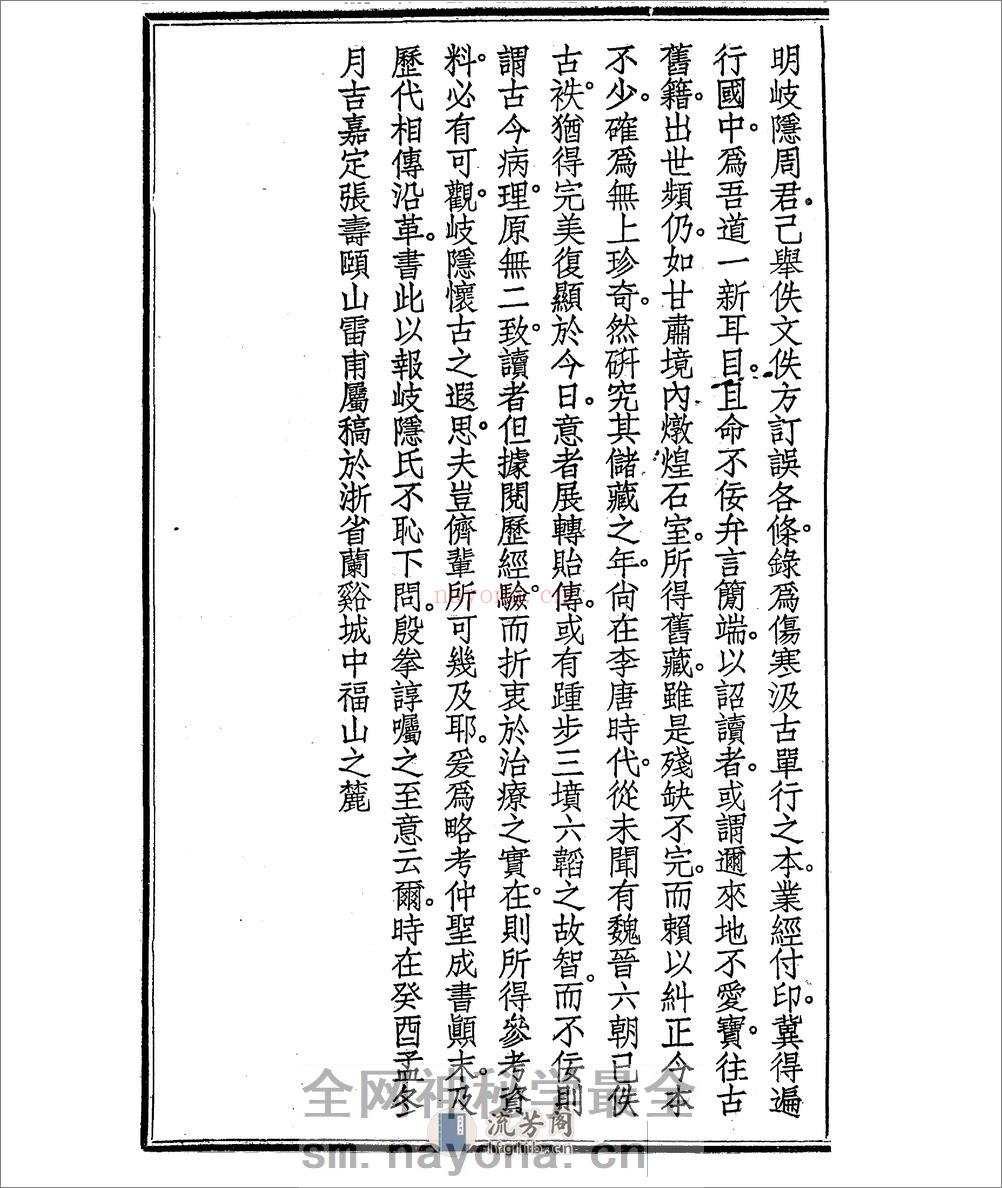 明岐隱周君。己舉佚文佚方訂誤各條。錄爲傷寒汲古單行之本。業經付印。冀得遍
行國中。爲吾道一新耳目。且命不佞弁言簡端。以詔讀者。或謂邇來地不愛寶。往古
舊籍。出世頻仍。如甘肅境內燉煌石室。所得舊藏。雖是殘缺不完。而賴以糾正今本
不少。確爲無上珍奇。然硏究其儲藏之年。尙在李唐時代。從未聞有魏晉六朝已佚
古袟。猶得完美復顯於今日。意者展轉貽傳。或有踵步三墳六韜之故智。而不佞則
謂古今病理。原無二致。讀者但據閱歷經驗。而折衷於治療之實在。則所得參考資
料。必有可觀。岐隱懷古之遐思。夫豈儕輩所可幾及耶。爰爲略考仲聖成書顚末。及
歷代相傳沿革。書此以報岐隱氏不恥下問。殷拳諄囑之至意云爾。時在癸酉孟冬
月吉嘉定張壽頤山雷甫屬稿於浙省蘭谿城中福山之麓
nayona.cn
全网神秘学最全
流芳阁
lfglib.cn
sm.nayona.cn